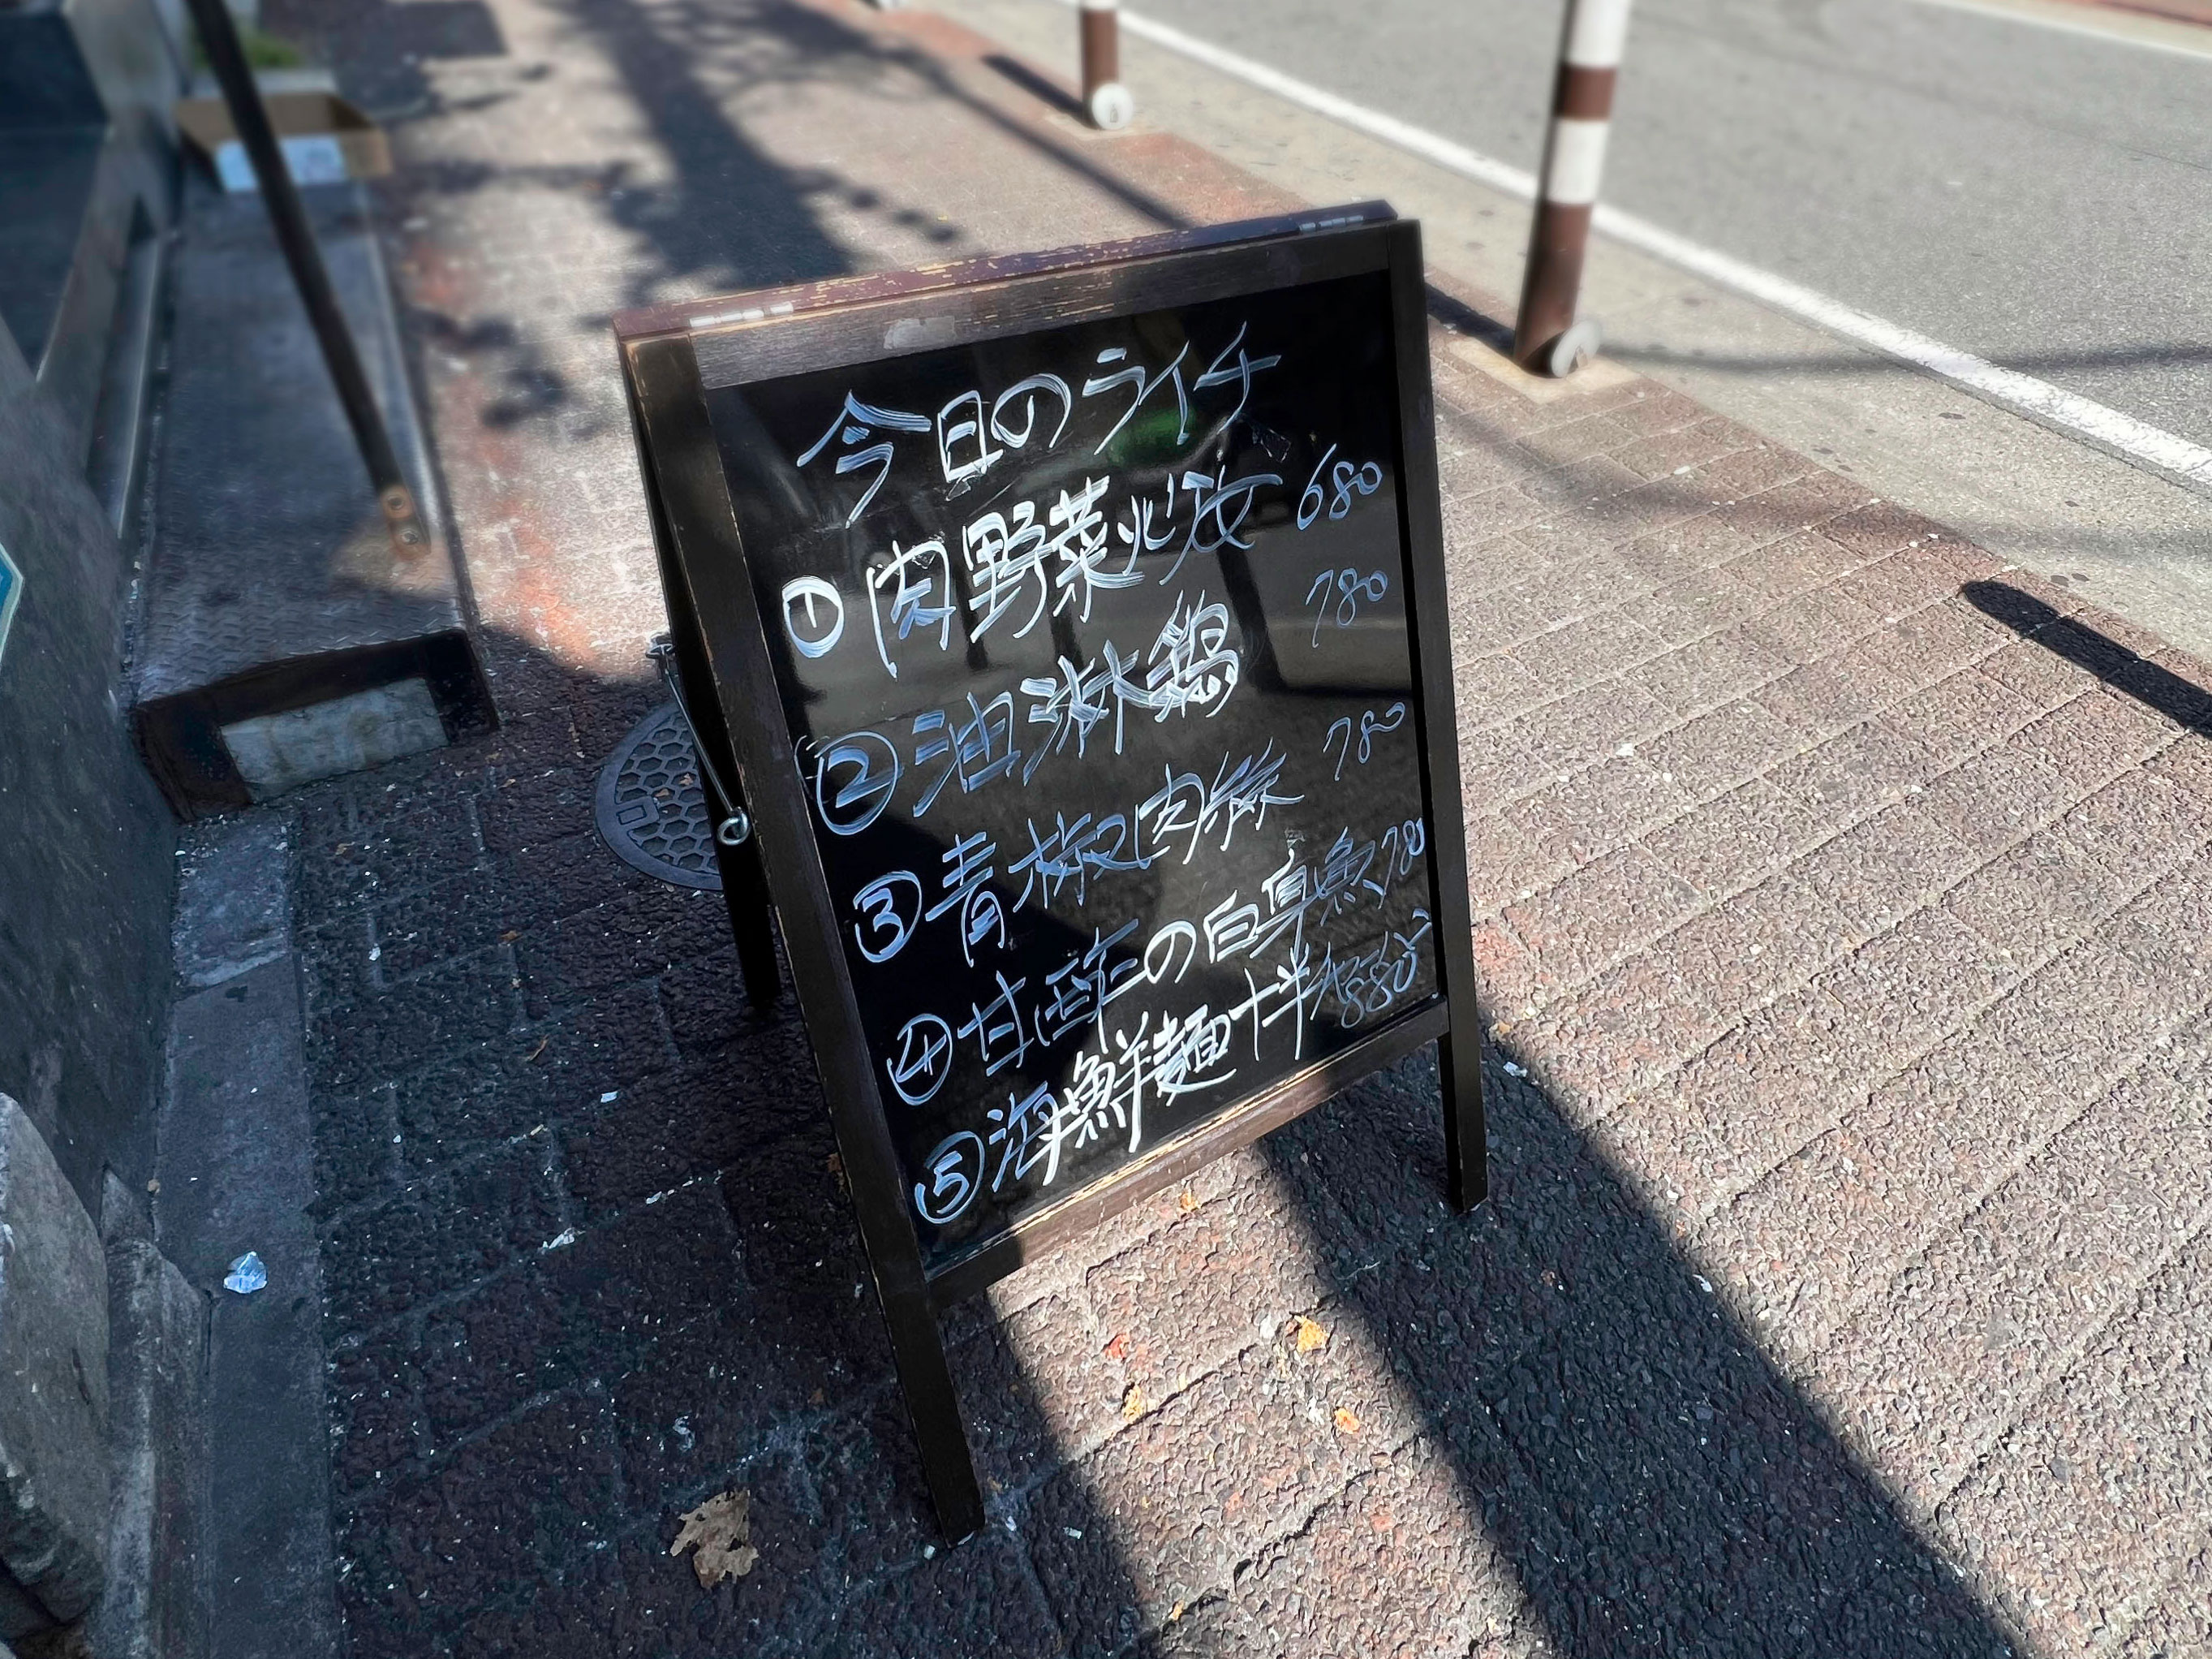 今日のライチ
① 肉野菜炒め 680
② 油淋鶏 780
③ 青椒肉絲 780
④ 甘酢の白身魚 780
⑤ 海鮮麺+半 880